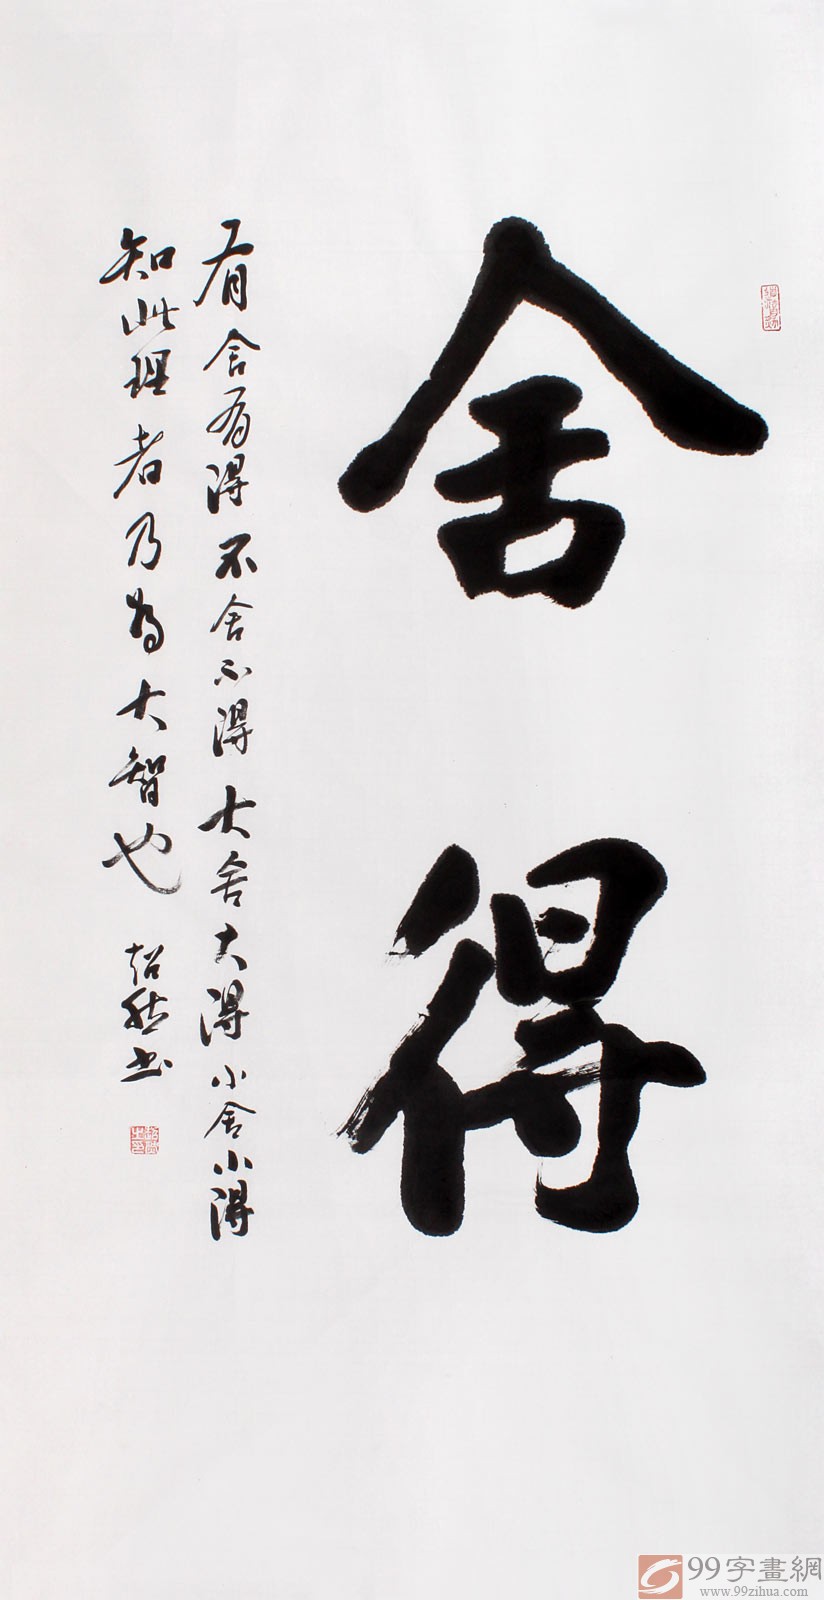 舍得
有舍有得不舍不得大舍大得小舍小得
知此理者乃为大智也
超然书
99字畫網
www.99zihua.com